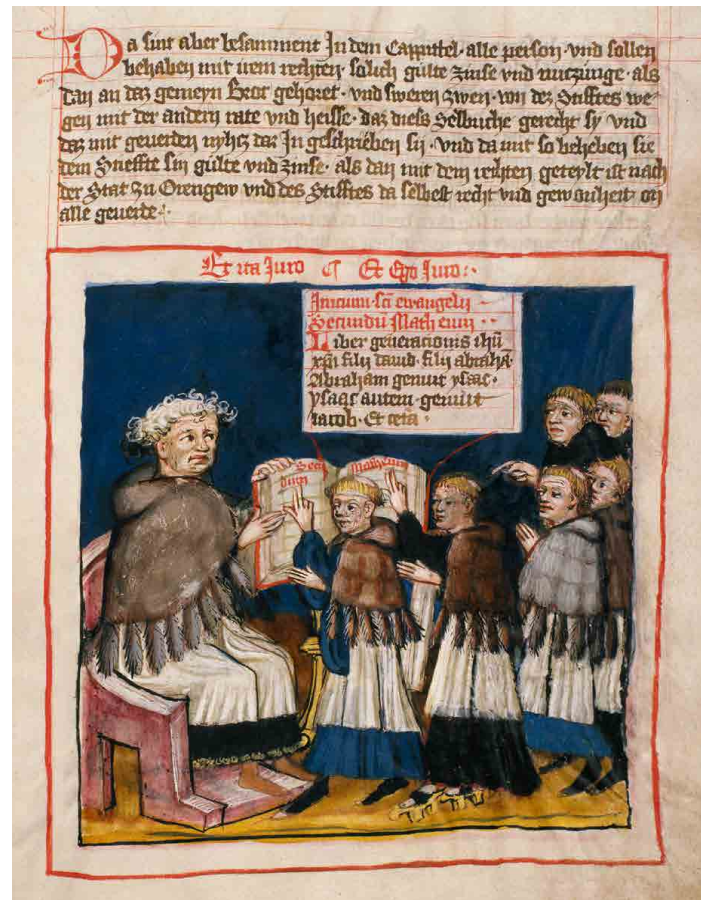 Da sint aber besamment In dem Cappittel · alle person · vnd sollen
behaben mit irem rechten · solich gülte zinse vnd nuczunge · als
dan an daz gemeyn Brot gehoret · vnd sweren zwen · von dez Stifftes we-
gen mit der andern rate vnd heisse · daz diess Selbuche gerecht sy vnd
daz mit geuerden nyhcz dar In geschrieben sii · vnd da mit so beheben sie
dem Stieffte sin gulte vnd zinse · als dan mit dem rechten geteylt ist nach
der Stat zu Orengew vnd des Stifftes da selbest recht vnd gewonheit on
alle geuerde :·
Et ita Juro ¶ Et Ego Juro :·
Inicium · scī ewangelii
Secundū Matheum ··
Liber generacionis ihū
xp̄i filij dauid · filij abrahā
Abraham genuit ysaac ·
ysaac autem · genuit
Iacob · Et cetā ·
Secu Matheum
dum